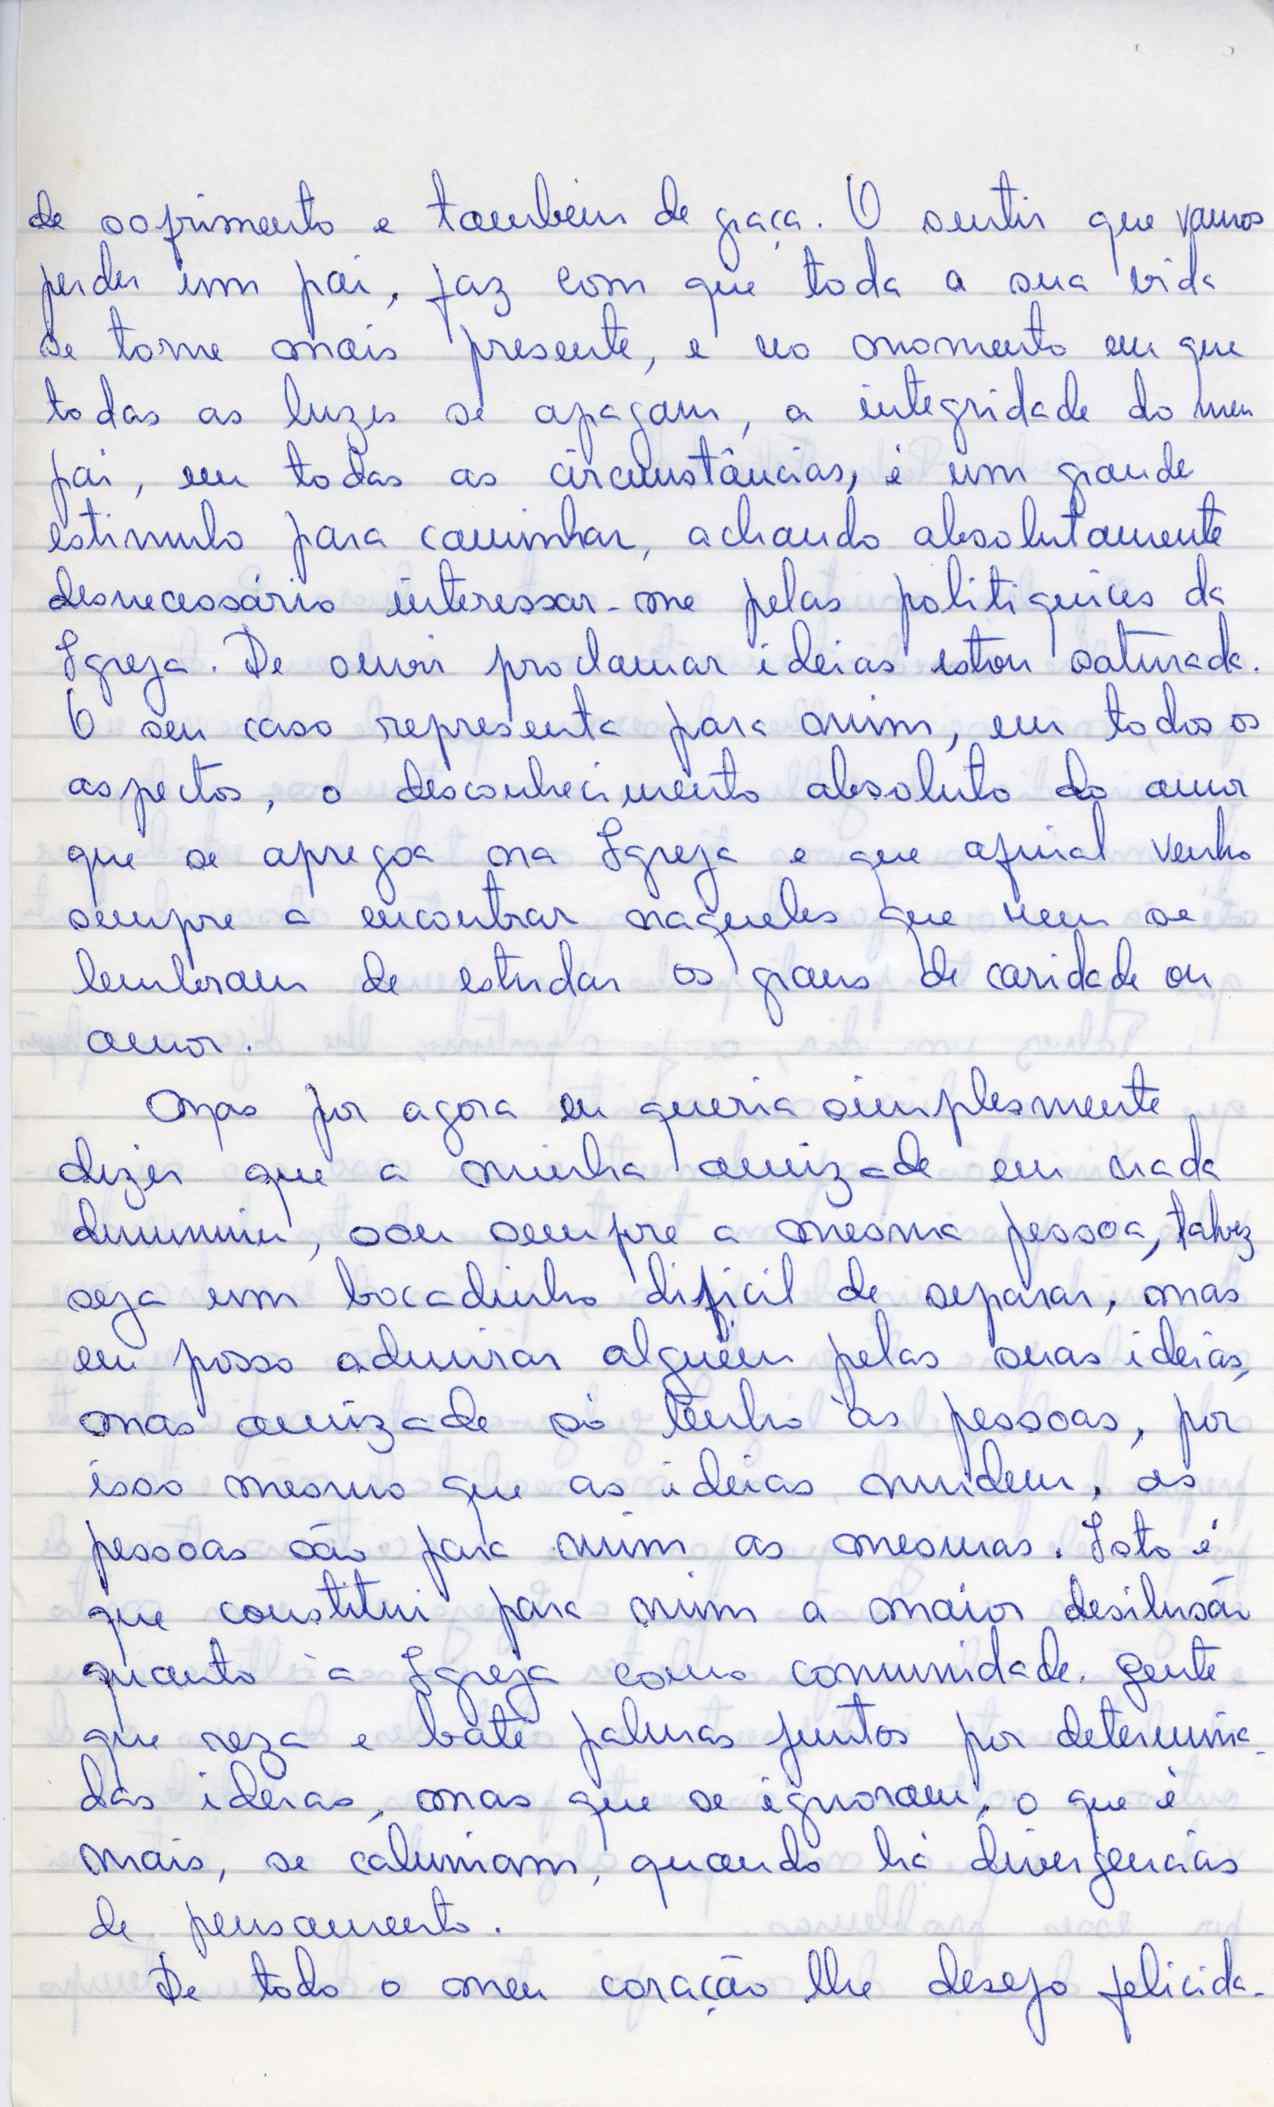 de sofrimento e também de graça. O sentir que vamos
perder um pai, faz com que toda a sua vida
se torne mais presente, e no momento em que
todas as luzes se apagam, a integridade do meu
pai, em todas as circunstâncias, é um grande
estimulo para caminhar, achando absolutamente
desnecessário interessar-me pelas politiquices da
Igreja. De ouvir proclamar ideias estou saturada.
O seu caso representa para mim, em todos os
aspectos, o desconhecimento absoluto do amor
que se apregoa na Igreja e que afinal venho
sempre a encontrar naqueles que nem se
lembram de estudar os graus de caridade ou
amor.
Mas por agora eu queria simplesmente
dizer que a minha amizade em nada
diminuiu, sou sempre a mesma pessoa, talvez
seja um bocadinho dificil de separar, mas
eu posso admirar alguém pelas suas ideias,
mas amizade só tenho às pessoas, por
isso mesmo que as ideias mudem, as
pessoas são para mim as mesmas. Isto é
que constitui para mim a maior desilusão
quanto à Igreja como comunidade. Gente
que reza e bate palmas juntos por determina-
das ideias, mas que se ignoram, o que é
mais, se caluniam, quando há divergências
de pensamento.
De todo o meu coração lhe desejo felicida-